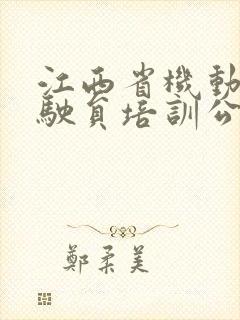 江西省機動
駛員培訓公
鄭柔美